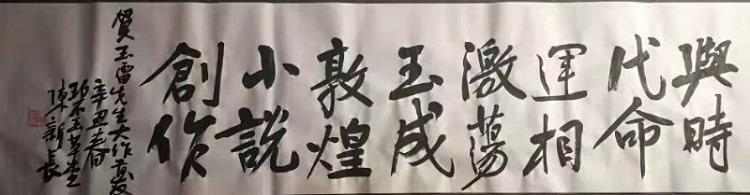 與時
代命
運相
激蕩
玉成
敦煌
小說
創作
賀玉雷先生大作
辛丑春
陳新長